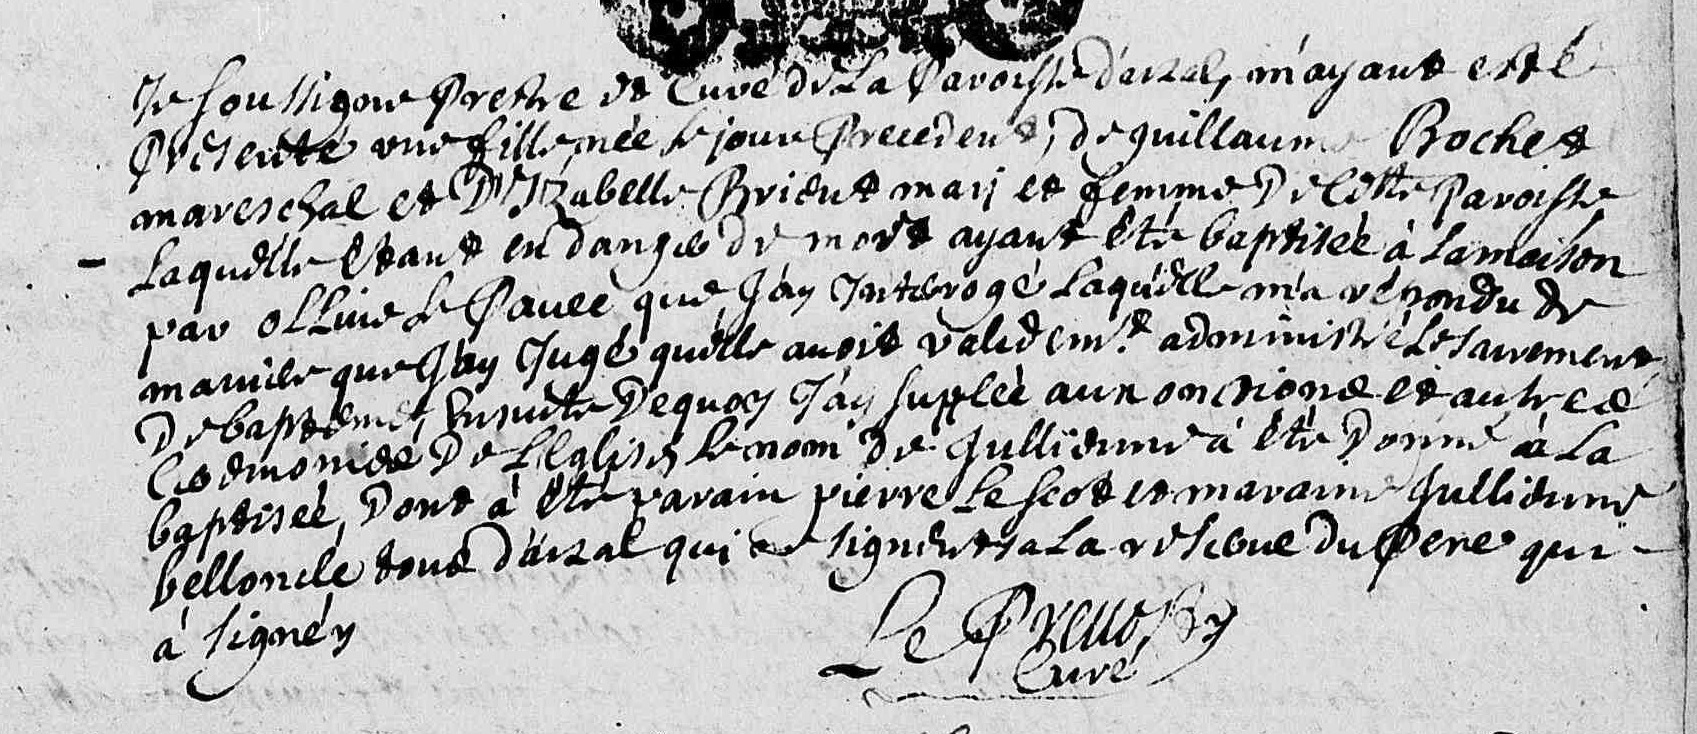 Je soussigne Prestre et Curé de La Paroisse d'arzal, m'ayant esté
Presenté une fille née le jour Precedent, de guillaume Rochet
mareschal et D'Izabelle Brient mary et femme De Cette Paroisse
Laquelle etant en danger de mort ayant été baptisée à la maison
par ollive Le Pauec que J'ay Interogé Laquelle m'a répondu de
maniere que J'ay Jugé qu'elle avoit validemt. administré Le sacrement
De baptême, Ensuite Dequoy J'ay supplée aux onctions et autres
Ceremonies De L'Eglise, Le nom de Jullienne à été Donné à La
baptisée, Dont à été parain pierre Le scot et maraine Jullienne
belloncle tous d'arzal qui ne signent, a La reserve du Pere qui
à signéy
Le Prevost
Curé